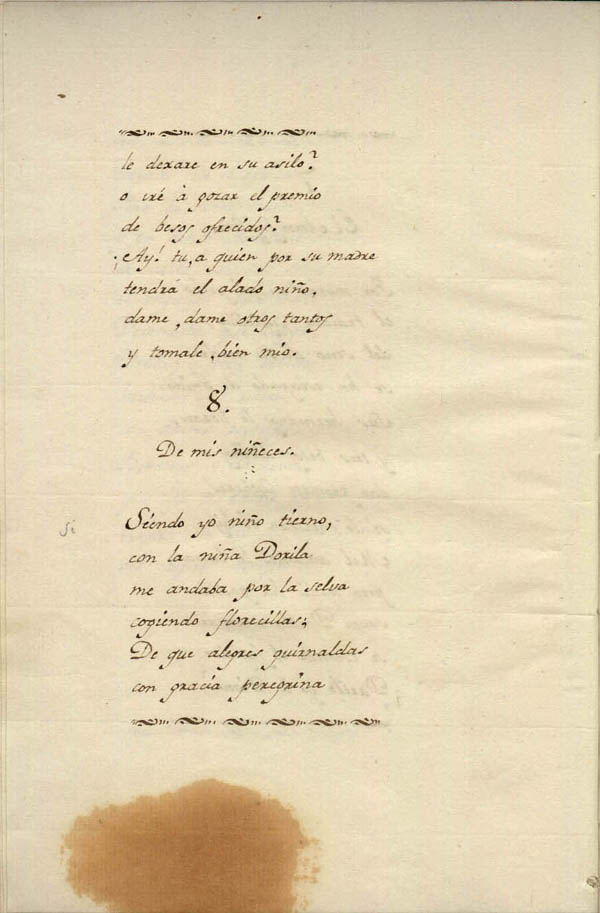 le dexare en su asilo?
o iré à gozar el premio
de besos ofrecidos?
¡Ay! tu, a quien por su madre
tendrá el alado niño,
dame, dame otros tantos
y tomale, bien mio.
8.
De mis niñeces.
Si
Siendo yo niño tierno,
con la niña Dorila
me andaba por la selva
cogiendo florecillas;
De que alegres guirnaldas
con gracia peregrina